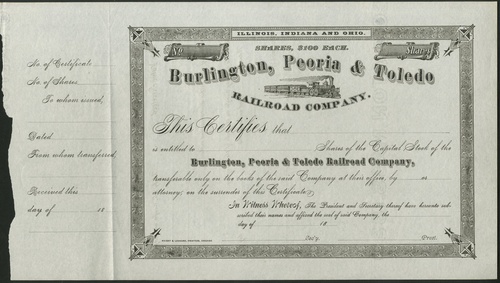 No. of Certificate
No. of Shares
To whom issued,
Dated
From whom transferred,
Received this
day of 18
ILLINOIS, INDIANA AND OHIO.
No
SHARES, $100 EACH.
Shares
Burlington, Peoria & Toledo
RAILROAD COMPANY.
This Certifies that
is entitled to Shares of the Capital Stock of the
Burlington, Peoria & Toledo Railroad Company,
transferable only on the books of the said Company at their office, by or
attorney, on the surrender of this Certificate.
In Witness Whereof, The President and Secretary thereof have hereunto sub-
scribed their names and affixed the seal of said Company, the
day of 18
Sec'y. Pres.